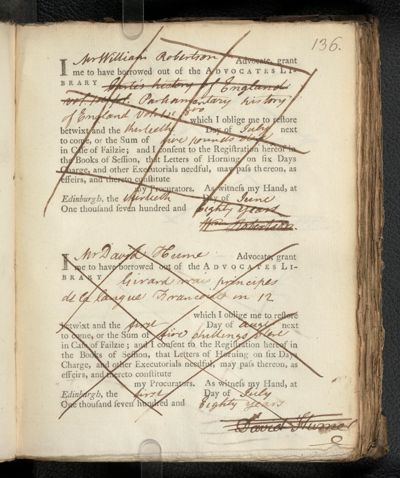 136.
I Mr William Robertson Advocate, grant
me to have borrowed out of the ADVOCATES LI-
BRARY Carte's history of England
vol 1st Parliamentary history
of England Vol 1st 8vo
which I oblige me to restore
betwixt and the thirtieth Day of July next
to come, or the Sum of five pounds Ster
in Case of Failzie; and I consent to the Registration hereof in
the Books of Session, that Letters of Horning on six Days
Charge, and other Executorials needful, may pass thereon, as
effeirs, and thereto constitute
my Procurators. As witness my Hand, at
Edinburgh, the thirtieth Day of June
One thousand seven hundred and Eighty years
Wm Robertson.
I Mr David Hume Advocate, grant
me to have borrowed out of the ADVOCATES LI-
BRARY Girard vrais principes
de la langue Francoise in 12
which I oblige me to restore
betwixt and the first Day of augt next
to come, or the Sum of five shillings Ster
in Case of Failzie; and I consent to the Registration hereof in
the Books of Session, that Letters of Horning on six Days
Charge, and other Executorials needful, may pass thereon, as
effeirs, and thereto constitute
my Procurators. As witness my Hand, at
Edinburgh, the first Day of July
One thousand seven hundred and Eighty years
David Hume